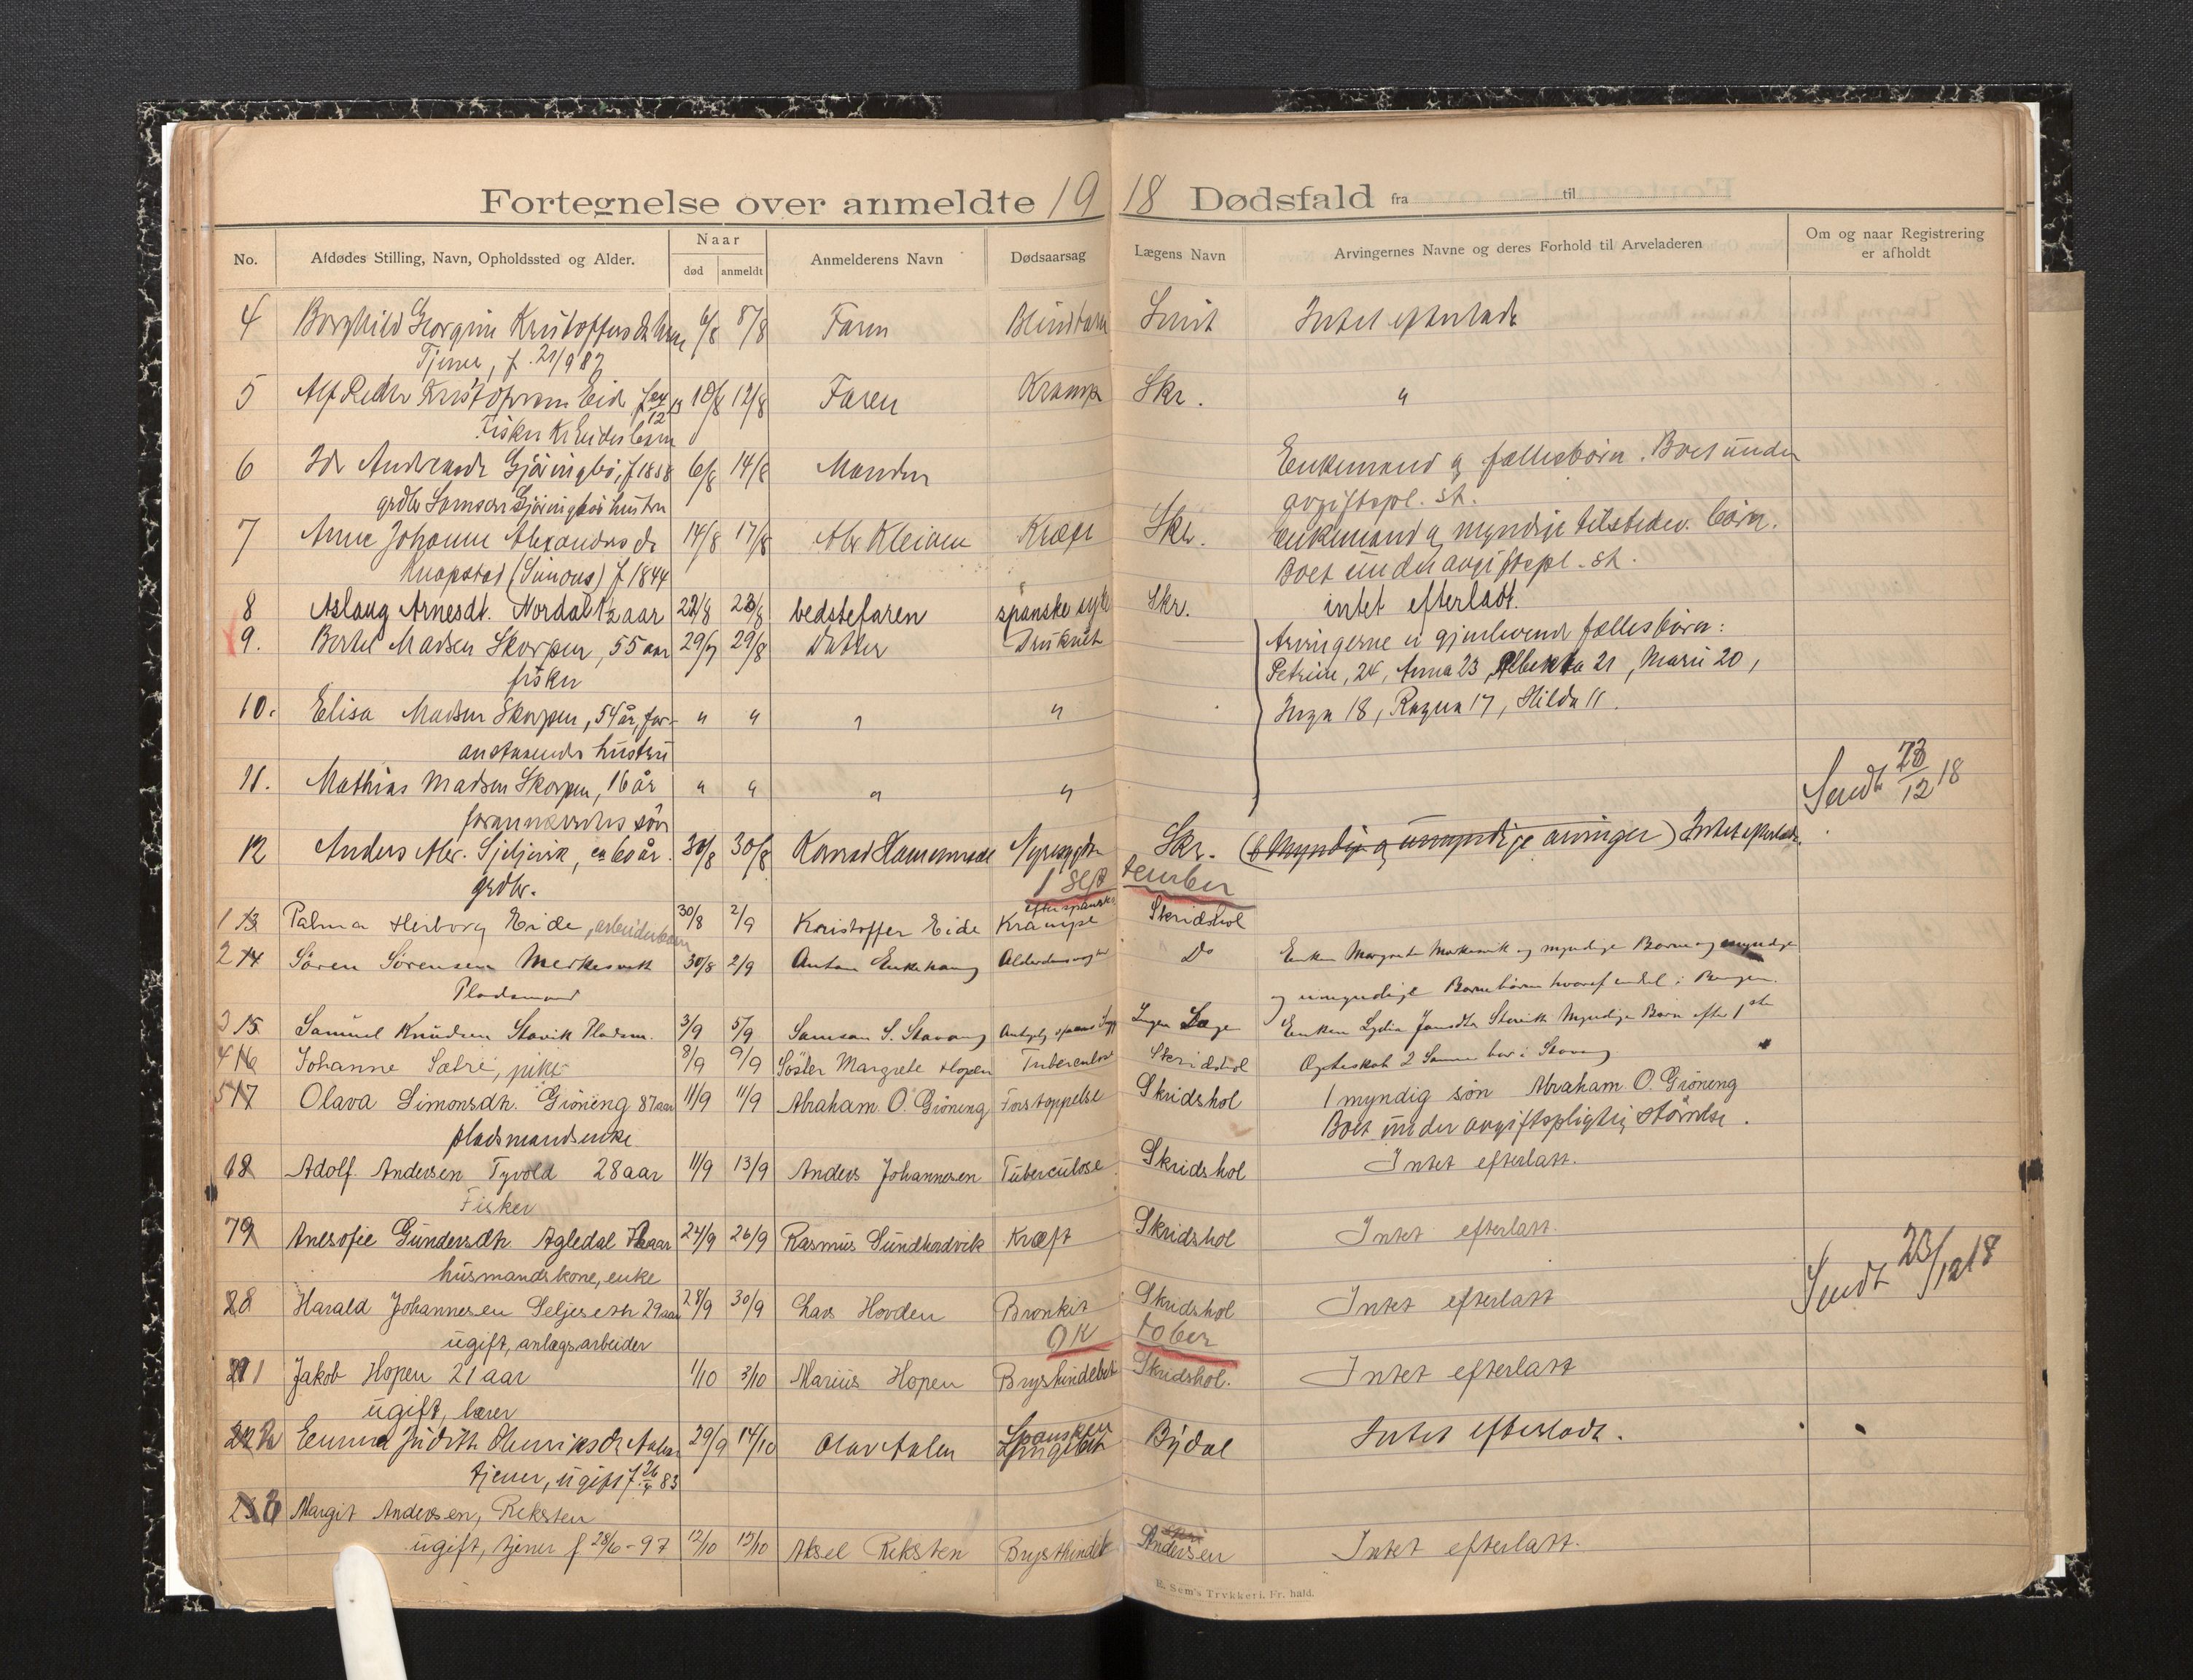 Fortegnelse over anmeldte 1918 Dødsfald fra til
No. Afdødes Stilling, Navn, Opholdssted og Alder. Naar død anmeldt Anmelderens Navn Dødsaarsag Lægens Navn Arvingernes Navne og deres Forhold til Arveladeren Om og naar Registrering er afholdt
4 Borghild Georgine 6/8 8/8 Faren Intet efterladt
Tjener, f. 21/9 87
5 Alf 10/8 12/8 Faren Krampe Skr. "
Fisker
6 Gjøringbø, f 1858 6/8 14/8 Manden Enkemand og fællesbörn. Boet under
grdbr Samson Gjøringbös hustru avgiftspl. st.
7 Anne Johanne Alexandersdt 14/8 17/8 Alex Kleiven Kræft Skr. Enkemand og myndige tilstedev. börn.
Knapstad (Simons) f 1844 Boet under avgiftspl. st.
8 Aslaug Arnesdt. Nordal 1½ aar 22/8 23/8 bedstefaren spanske syke Skr. intet efterladt.
9. Bertel Madsen Skorpen, 55 aar 29/8 Datter Druknet Arvingerne er gjenlevende fællesbörn:
fisker Petrine, 24, Anna 23, 21, Marie 20,
10. Elisa Madsen Skorpen, 54 år, for- " " " " Inga 18, Ragna 17, Hilda 11.
anstaaendes hustru
11. Mathias Madsen Skorpen, 16 år " " " " Sendt 23/12 18
forannævntes sön
12 Anders Alex. ca 60 år. 30/8 30/8 Konrad Skr. (6 Myndige og umyndige arvinger) Intet efterladt
grdbr.
1 September
1 13 Palma Herborg Eide, arbeiderbarn 30/8 2/9 Kristoffer Eide efter spanske Krampe Skridshol
2 14 Sören Sörensen Merkesvik 30/8 2/9 Anton Do Enken Margrete Merkesvik og myndige Børn og myndige
Pladsmand og umyndige Barnebörn hvoraf endel i Bergen.
3 15 Samuel Knudsen Stavik Pladsm. 3/9 5/9 Samson S. Stavang Ingen Læge Enken Lydia Jansdtr Stavik Myndige Børn efter 1ste
4 16 Johanne Sætre, pike 8/9 9/9 Söster Margrete Hopen Tuberculose Skridshol Ægteskab 2 Sønner bor i Stavang
5 17 Olava Simonsdh. Gröneng 87 aar 11/9 11/9 Abraham O. Gröneng Forstoppelse Skridshol 1 myndig sön Abraham O. Gröneng
pladsmandsenke Boet under avgiftspligtig störrelse.
18 Adolf Andersen Tyvold 28 aar 11/9 13/9 Anders Johannesen Tuberculose Skridshol Intet efterlatt.
Fisker
79 Anesofie Gundersdh. Agledal aar 24/9 26/9 Rasmus Sundhordvik Kræft Skridshol Intet efterlatt.
husmandskone, enke
28 Harald Johannesen Seljeseth 29 aar 28/9 30/9 Lars Hovden Bronkit Skridshol Intet efterlatt Sendt 23/12 18
ugift, anlægsarbeider
Oktober
21 1 Jakob Hopen 21 aar 1/10 3/10 Marius Hopen Brysthindebet Skridshol. Intet efterlatt
ugift, lærer
22 2 Emma Judith Henriksdt Aalen 29/9 14/10 Olav Aalen Spanske Bydal Intet efterladt.
tjener, ugift f. 83
23 3 Margit Andersen, Reksten
ugift, tjener f 28/6 - 97 12/10 15/10 Aksel Reksten Brysthindebet Andersen Intet efterlatt.
E. Sem's Trykkeri, Fr. hald.